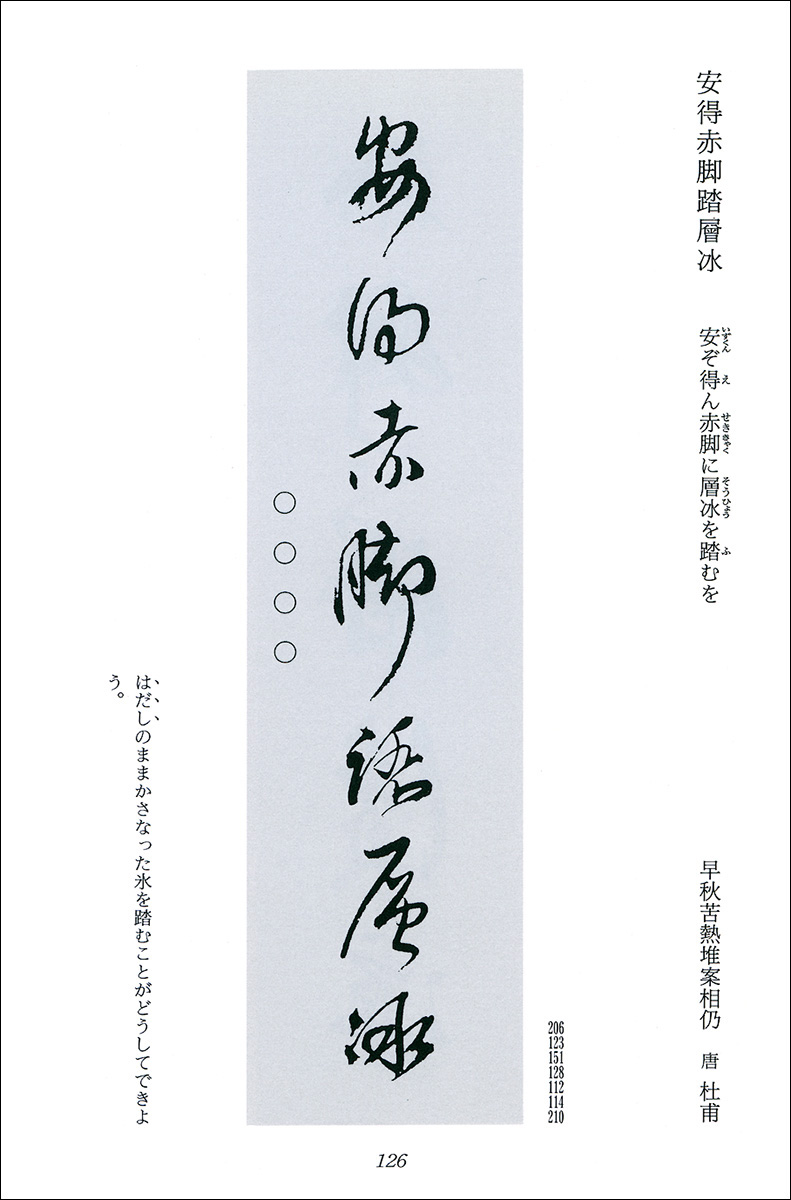 安得赤脚踏層冰
安ぞ得ん赤脚に層冰を踏むを
いずくん え せききゃく そうひょう ふ
早秋苦熱堆案相仍 唐 杜甫
206
123
151
128
112
114
210
安得赤脚踏層冰
○○○○
はだしのままかさなった氷を踏むことがどうしてできよ
う。
126